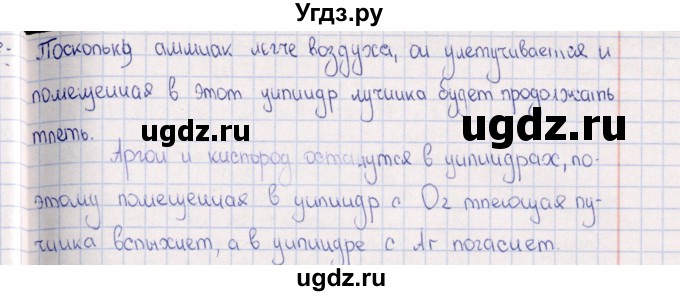 Угдз.ру
Поскольку аммиак легче воздуха, он улетучивается и
помещенная в этот цилиндр лучинка будет продолжать
тлеть.
ugdz.ru
ugdz.ru
ugdz.ru
Аргон и кислород останутся в цилиндрах, по-
этому помещенная в цилиндр с O2 тлеющая лу-
чинка вспыхнет, а в цилиндре с Ar погаснет.
ugdz.ru
ugdz.ru